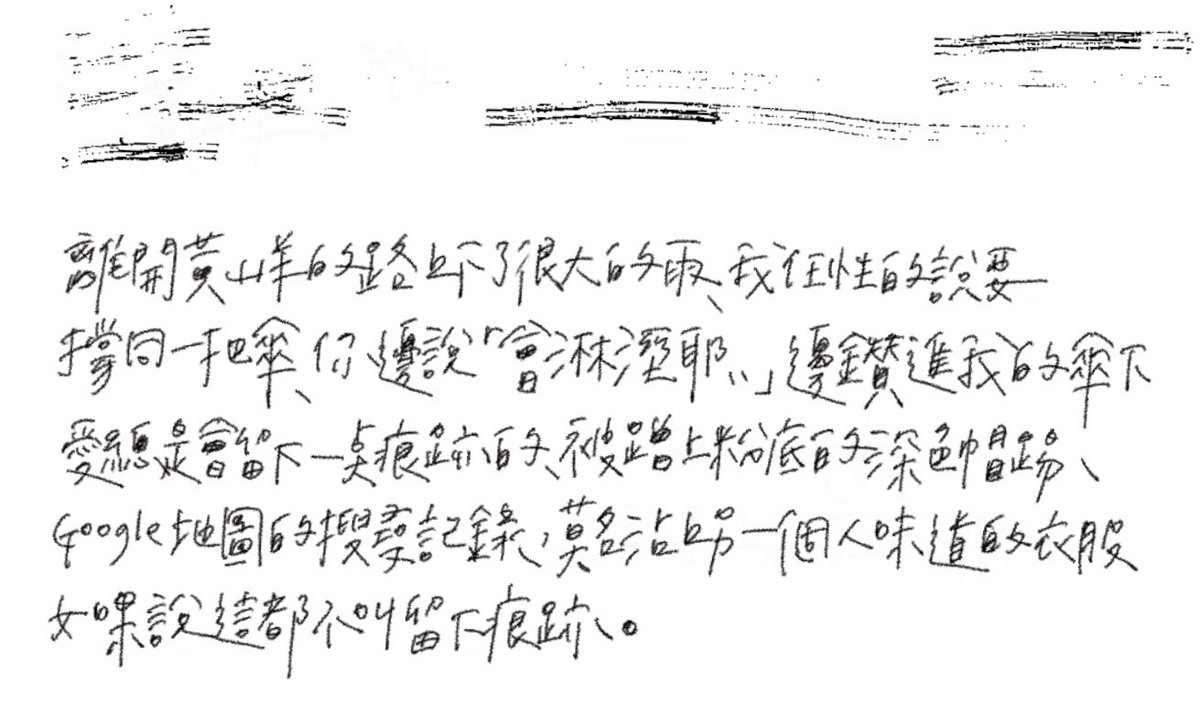 離開黃山羊的路上下了很大的雨、我任性的說要
撐同一把傘、你邊說「會淋溼耶...」邊鑽進我的傘下
愛總是會留下一點痕跡的、被蹭上粉底的深色帽踢、
Google地圖的搜尋記錄，莫名沾上另一個人味道的衣服
如果說這都不叫留下痕跡。